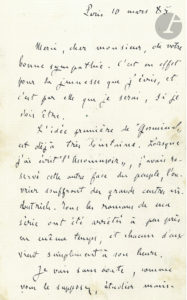 Paris 10 mars 85
Merci, cher monsieur, de votre
bonne sympathie. C'est en effet
pour la jeunesse que j'écris, et
c'est par elle que je serai, si je
dois être.
L'idée première de "Germinal"
est déjà très lointaine. Lorsque
j'ai écrit l'"Assommoir", j'avais ré-
servé cette autre face du peuple, l'ou-
vrier souffrant des grands centres in-
dustriels. Tous les romans de ma
série ont été arrêtés à peu près
en même temps, et chacun d'eux
vient simplement à son heure.
Je vais sans doute, comme
vous le supposez, étudier main-